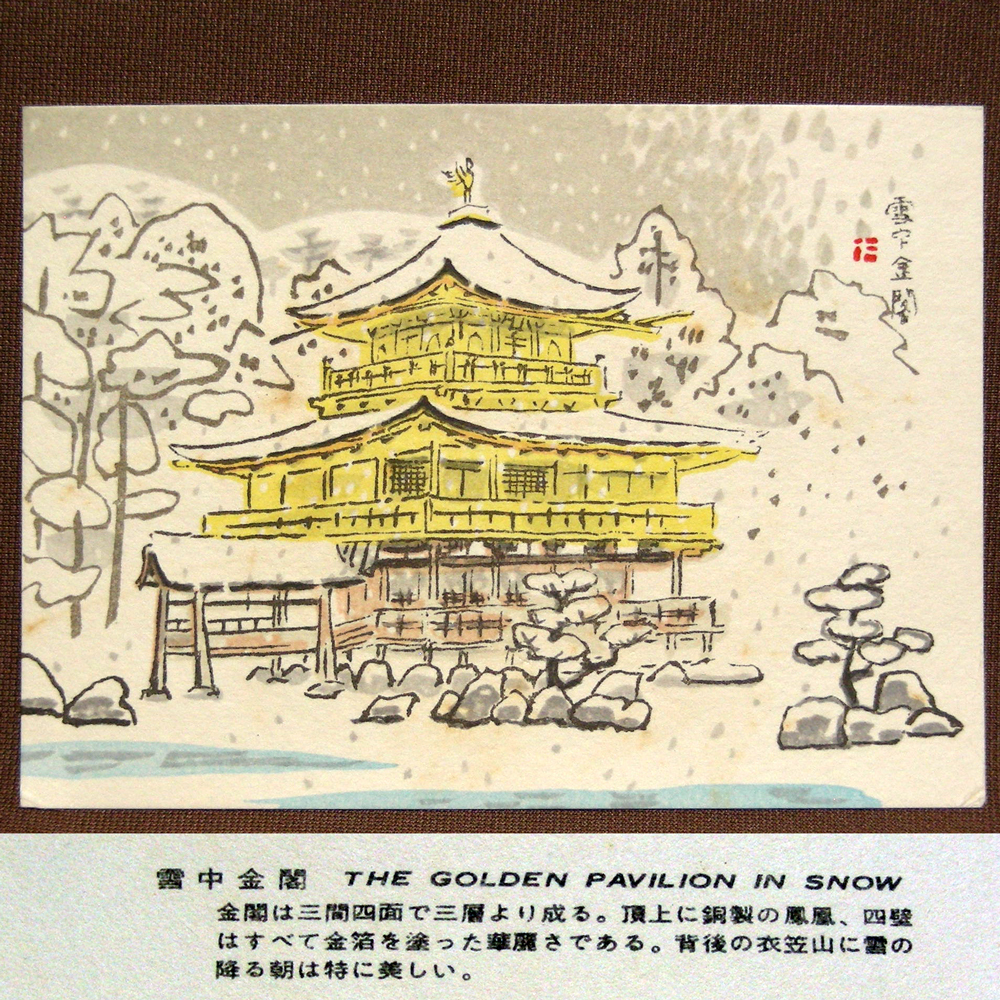 雪中金閣
仁
雪中金閣 THE GOLDEN PAVILION IN SNOW
金閣は三間四面で三層より成る。頂上に銅製の鳳凰、四壁
はすべて金箔を塗った華麗さである。背後の衣笠山に雪の
降る朝は特に美しい。